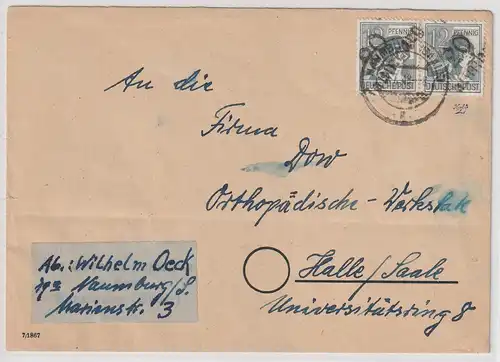 12 PFENNIG 12 PFENNIG
DEUTSCHE POST DEUTSCHE POST
An die
Firma
Dow
Orthopädische-Werkstatt
Halle/Saale
Universitätsring 8
Ab.: Wilhelm Oeck
Naumburg/S.
Marienstr. 3
7/1867